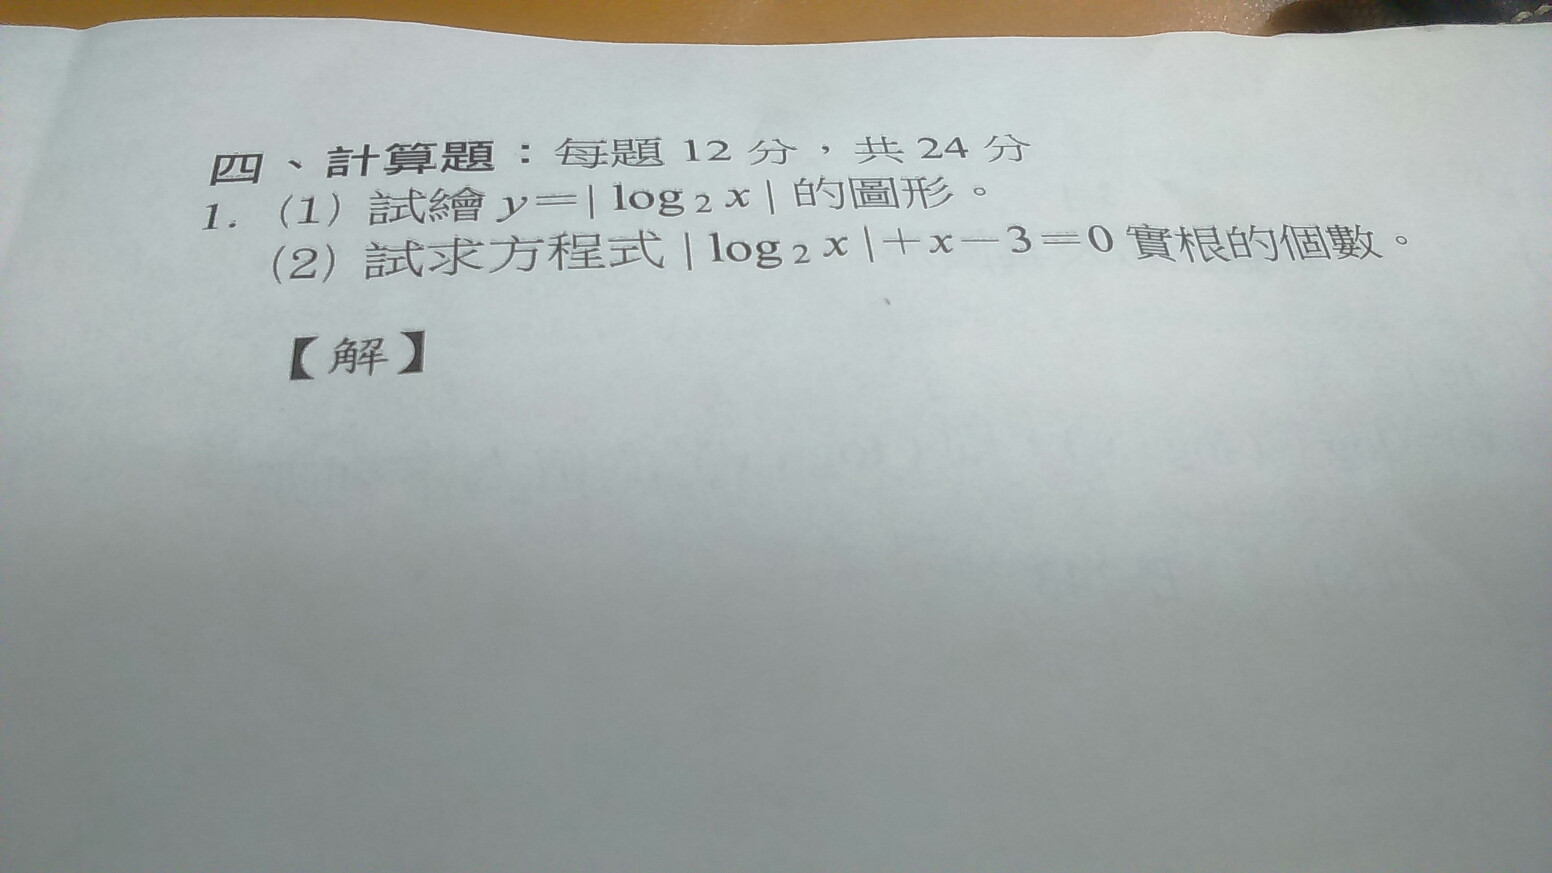 四、計算題：每題 12 分，共 24 分
1. (1) 試繪 y=| log₂ x | 的圖形。
(2) 試求方程式 | log₂ x |+x−3=0 實根的個數。
【解】